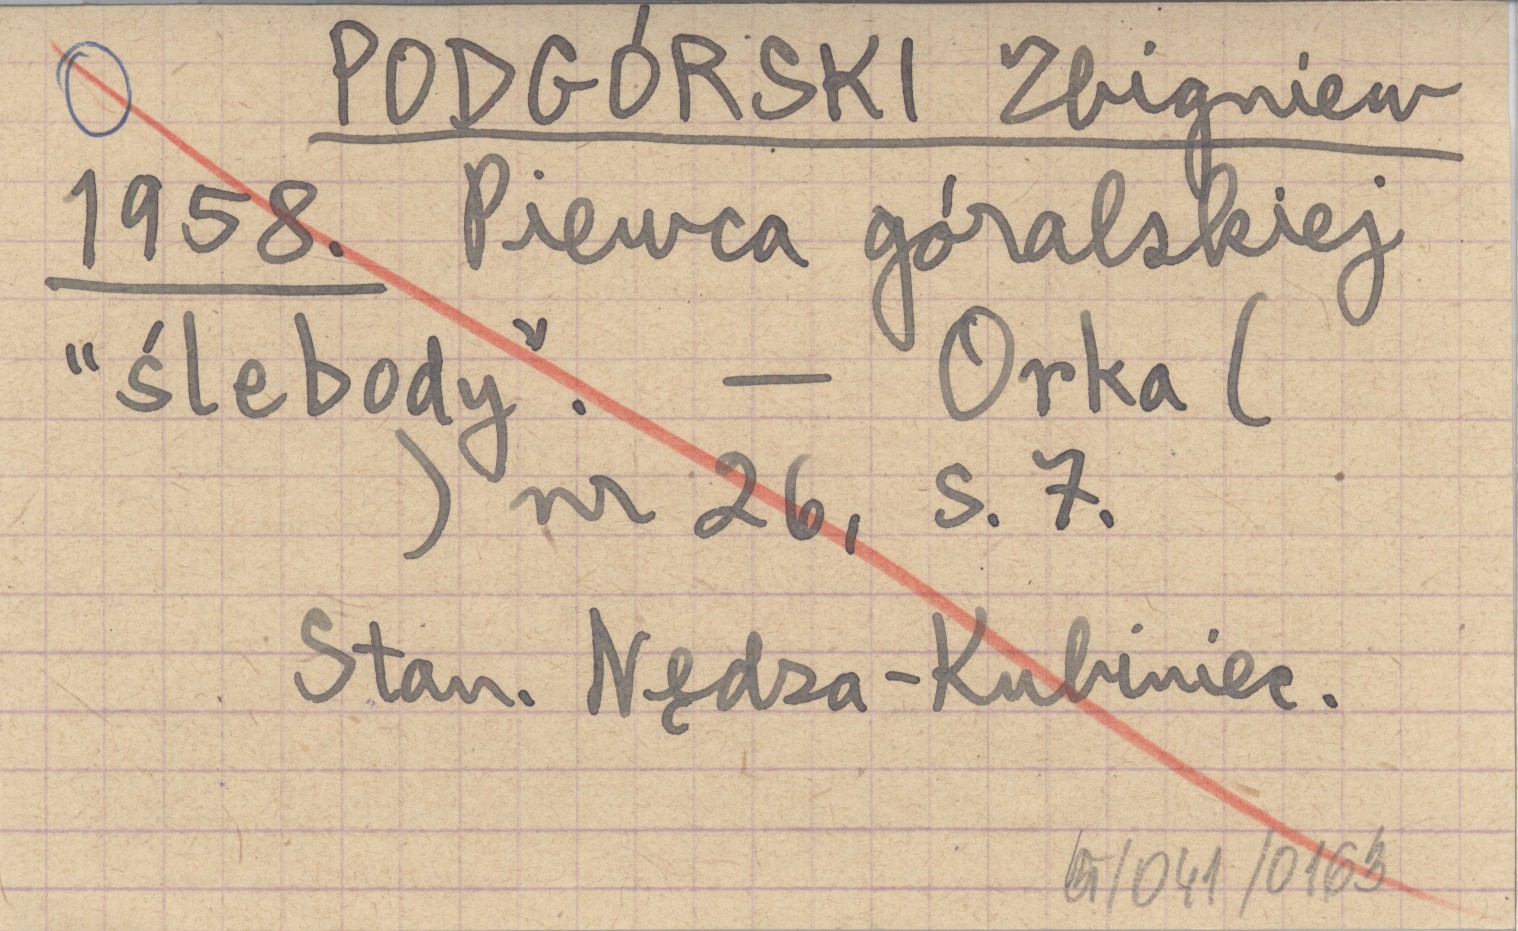 PODGÓRSKI Zbigniew
1958. Piewca góralskiej
"ślebody". — Orka (
) nr 26, s. 7.
Stan. Nędza-Kubiniec.
/041/0163